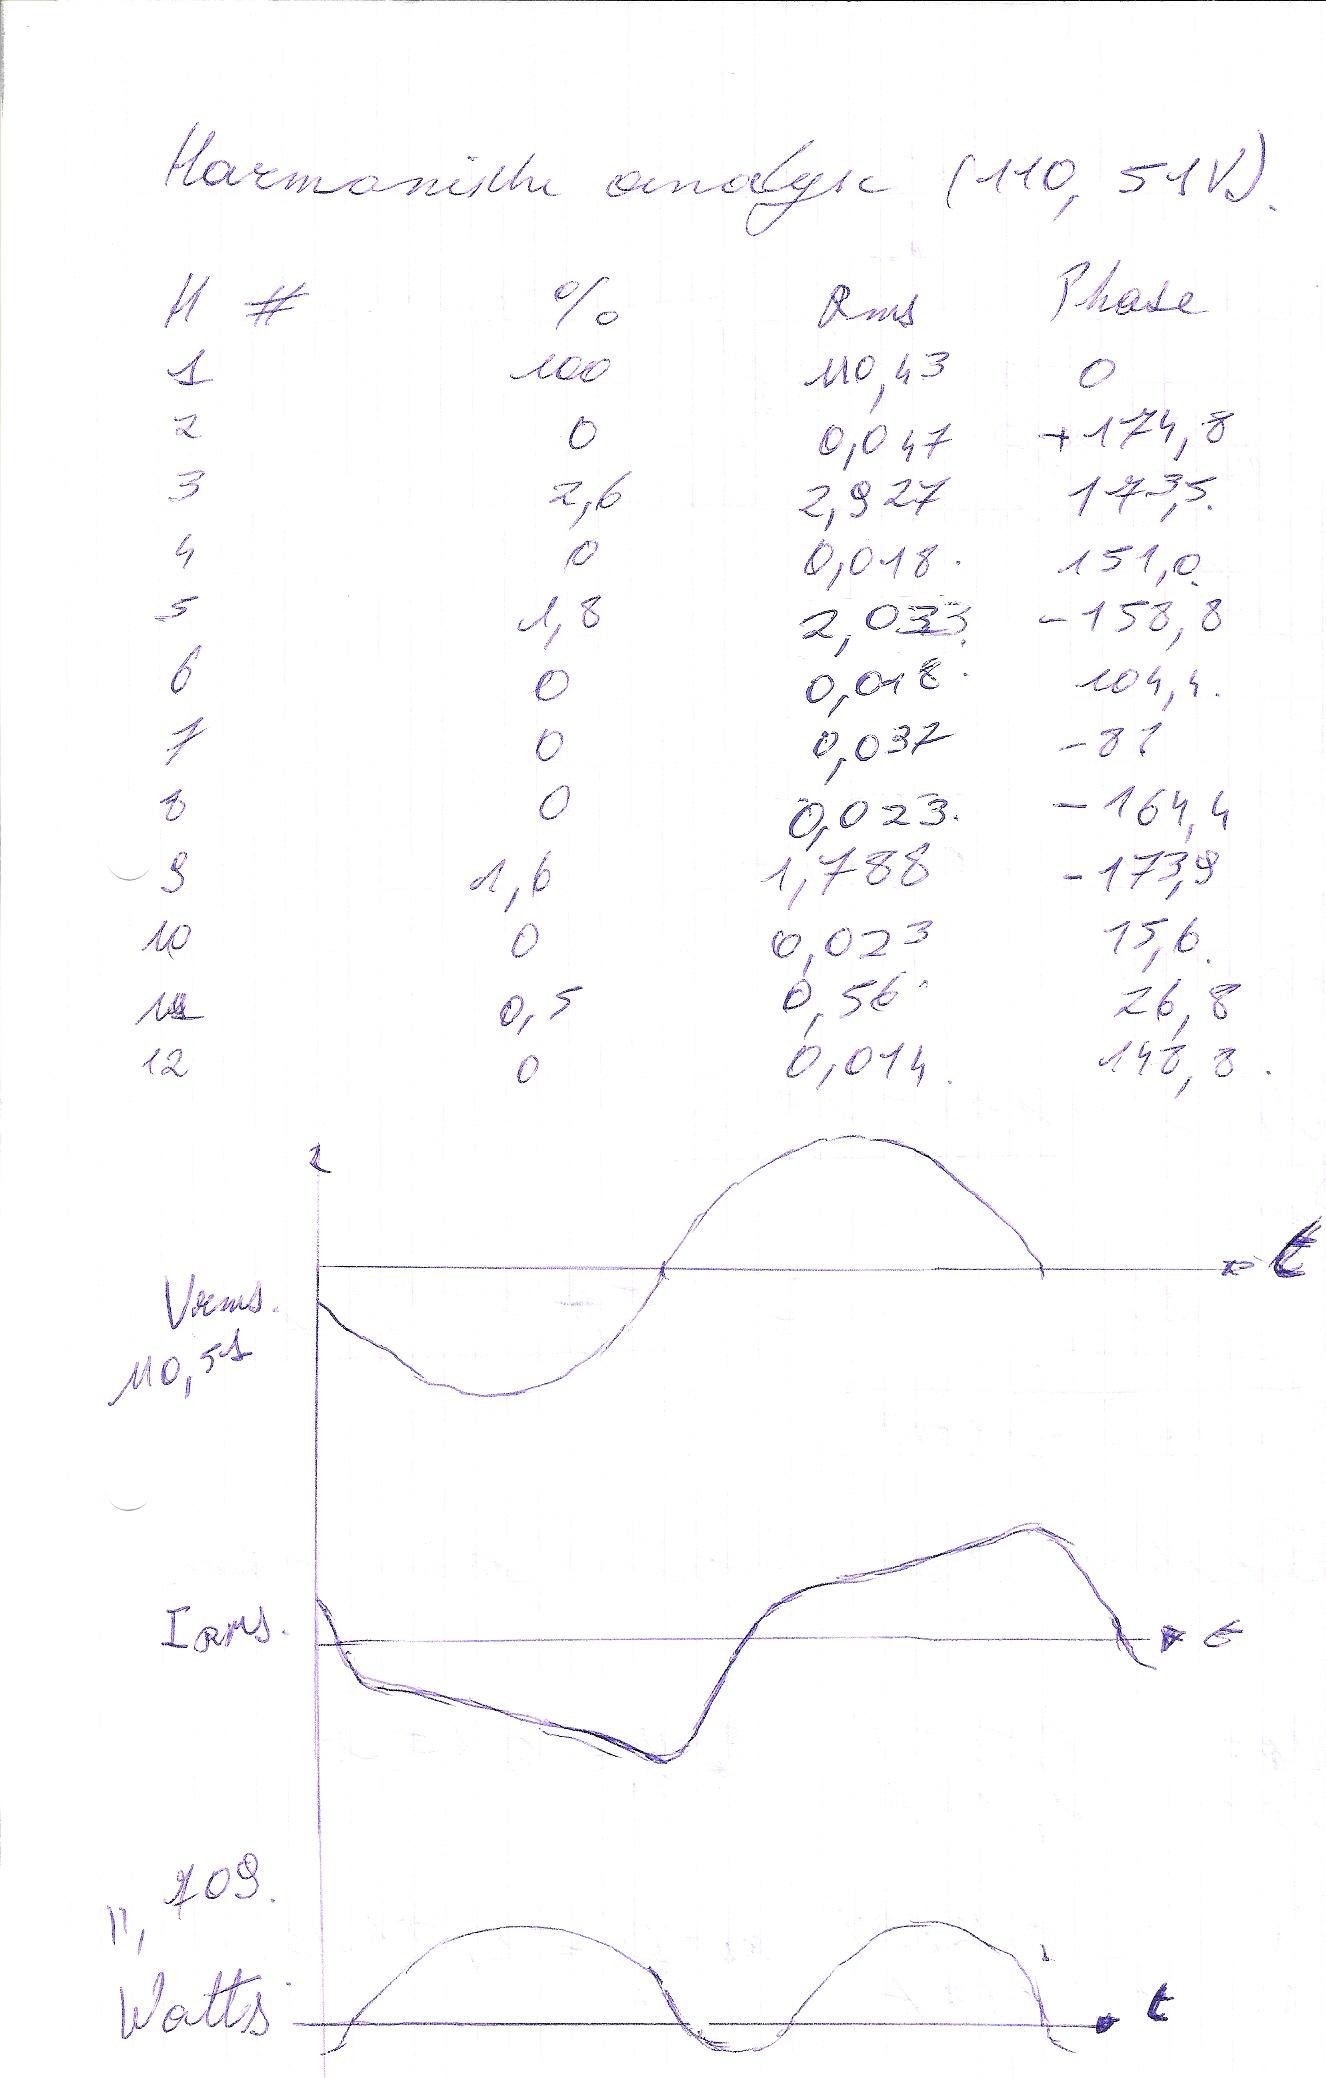 Harmonische analyse (110,51V).
H # % Rms Phase
1 100 110,43 0
2 0 0,047 +174,8
3 2,6 2,927 173,5.
4 0 0,018. 151,0.
5 1,8 2,033. -158,8
6 0 0,018. 104,4.
7 0 0,037
8 0 0,023. -164,4
9 1,6 1,788 -173,9
10 0 0,023 15,6.
11 0,5 0,56. 26,8
12 0 0,014. 148,8.
t
Vrms.
110,51
IRMS.
t
109.
Watts
t